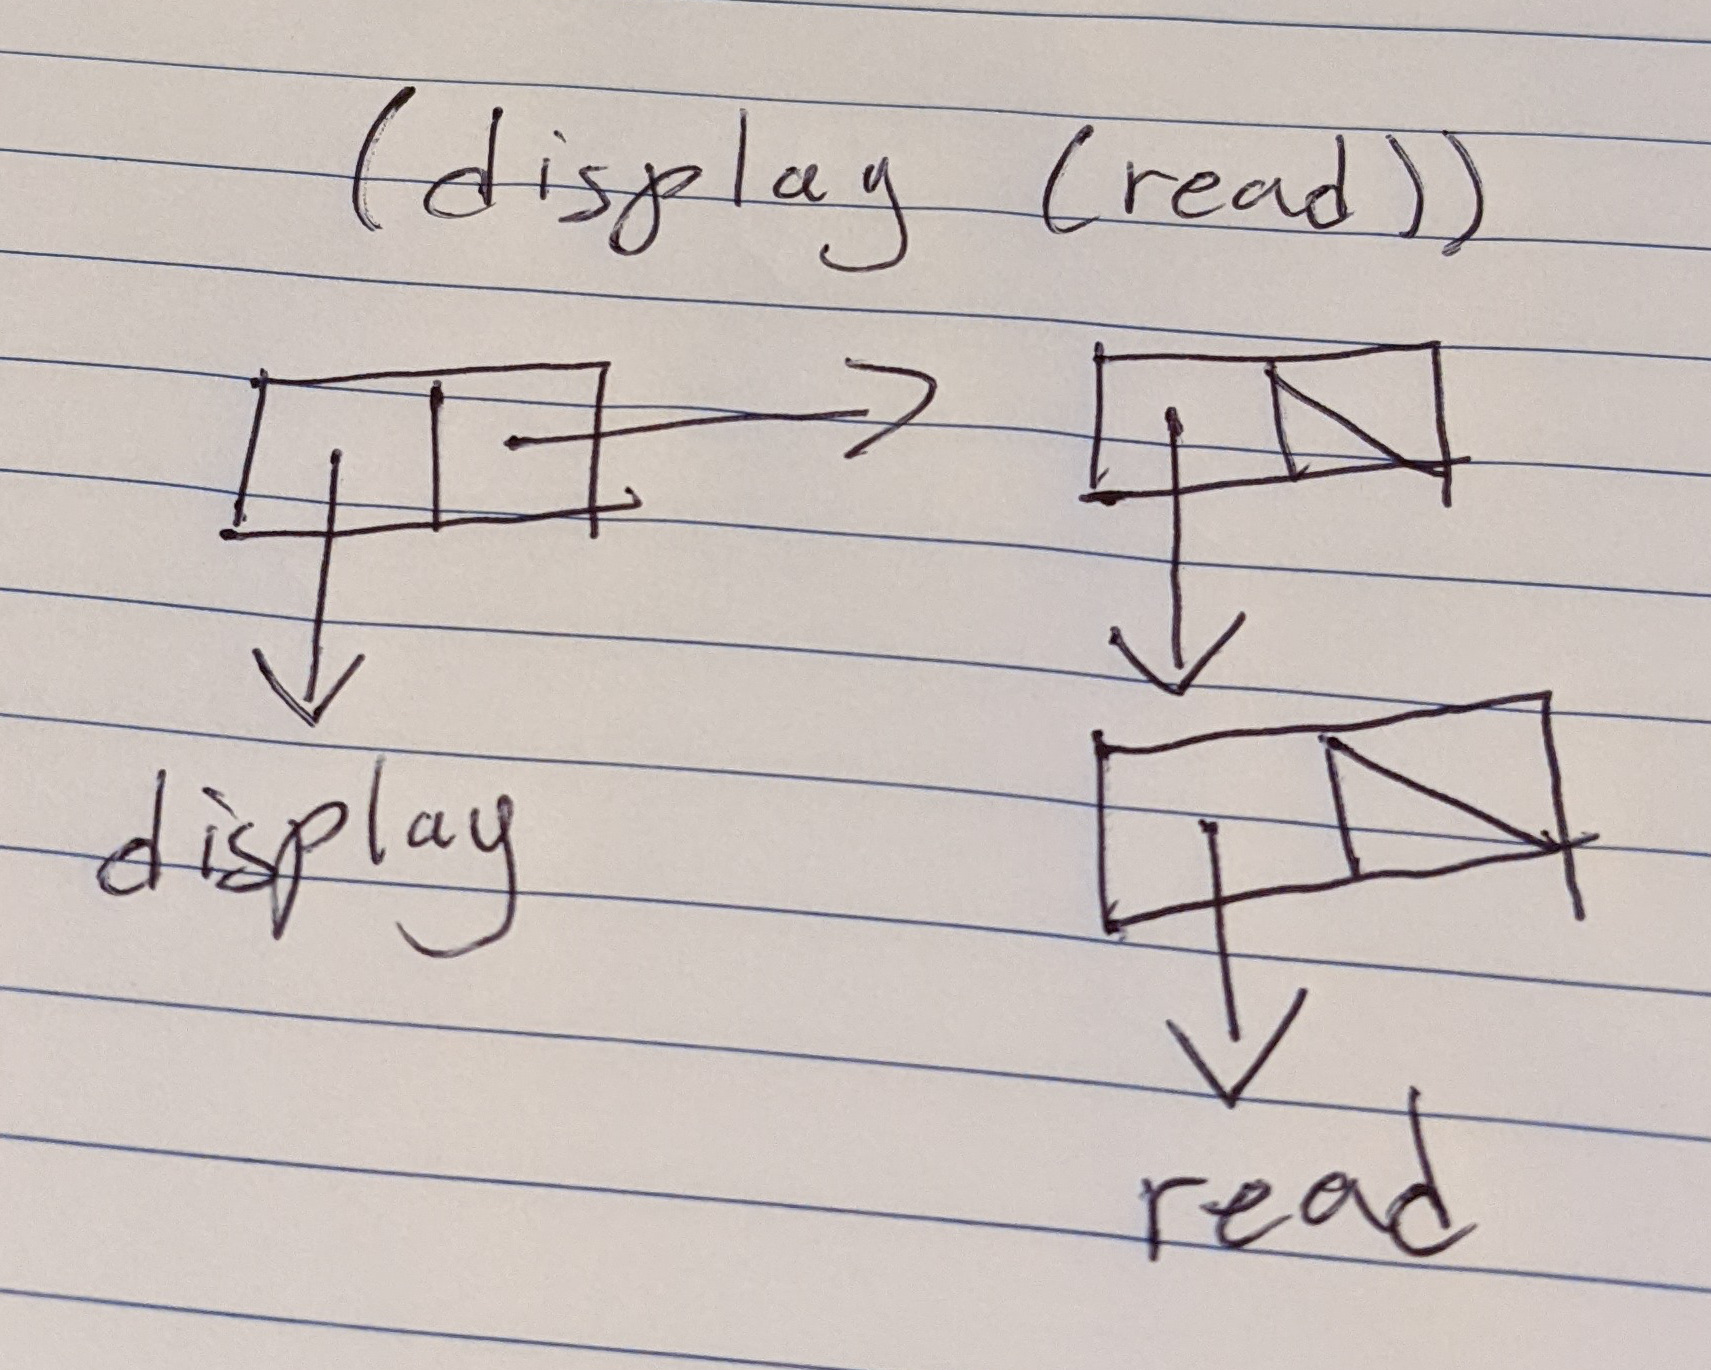 (display (read))
display
read